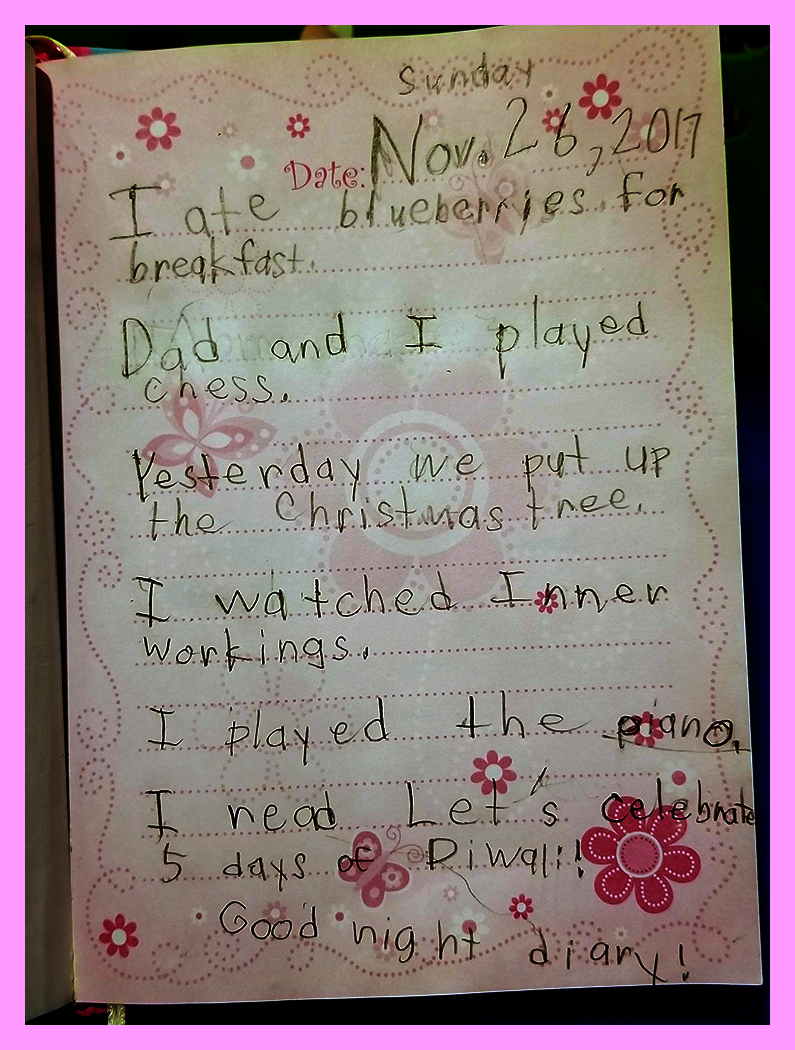 Sunday
Date: Nov. 26, 2017
I ate blueberries for
breakfast.
Dad and I played
chess.
Yesterday we put up
the Christmas tree.
I watched Inner
workings.
I played the piano.
I read Let's celebrate
5 days of Diwali!
Good night diary!